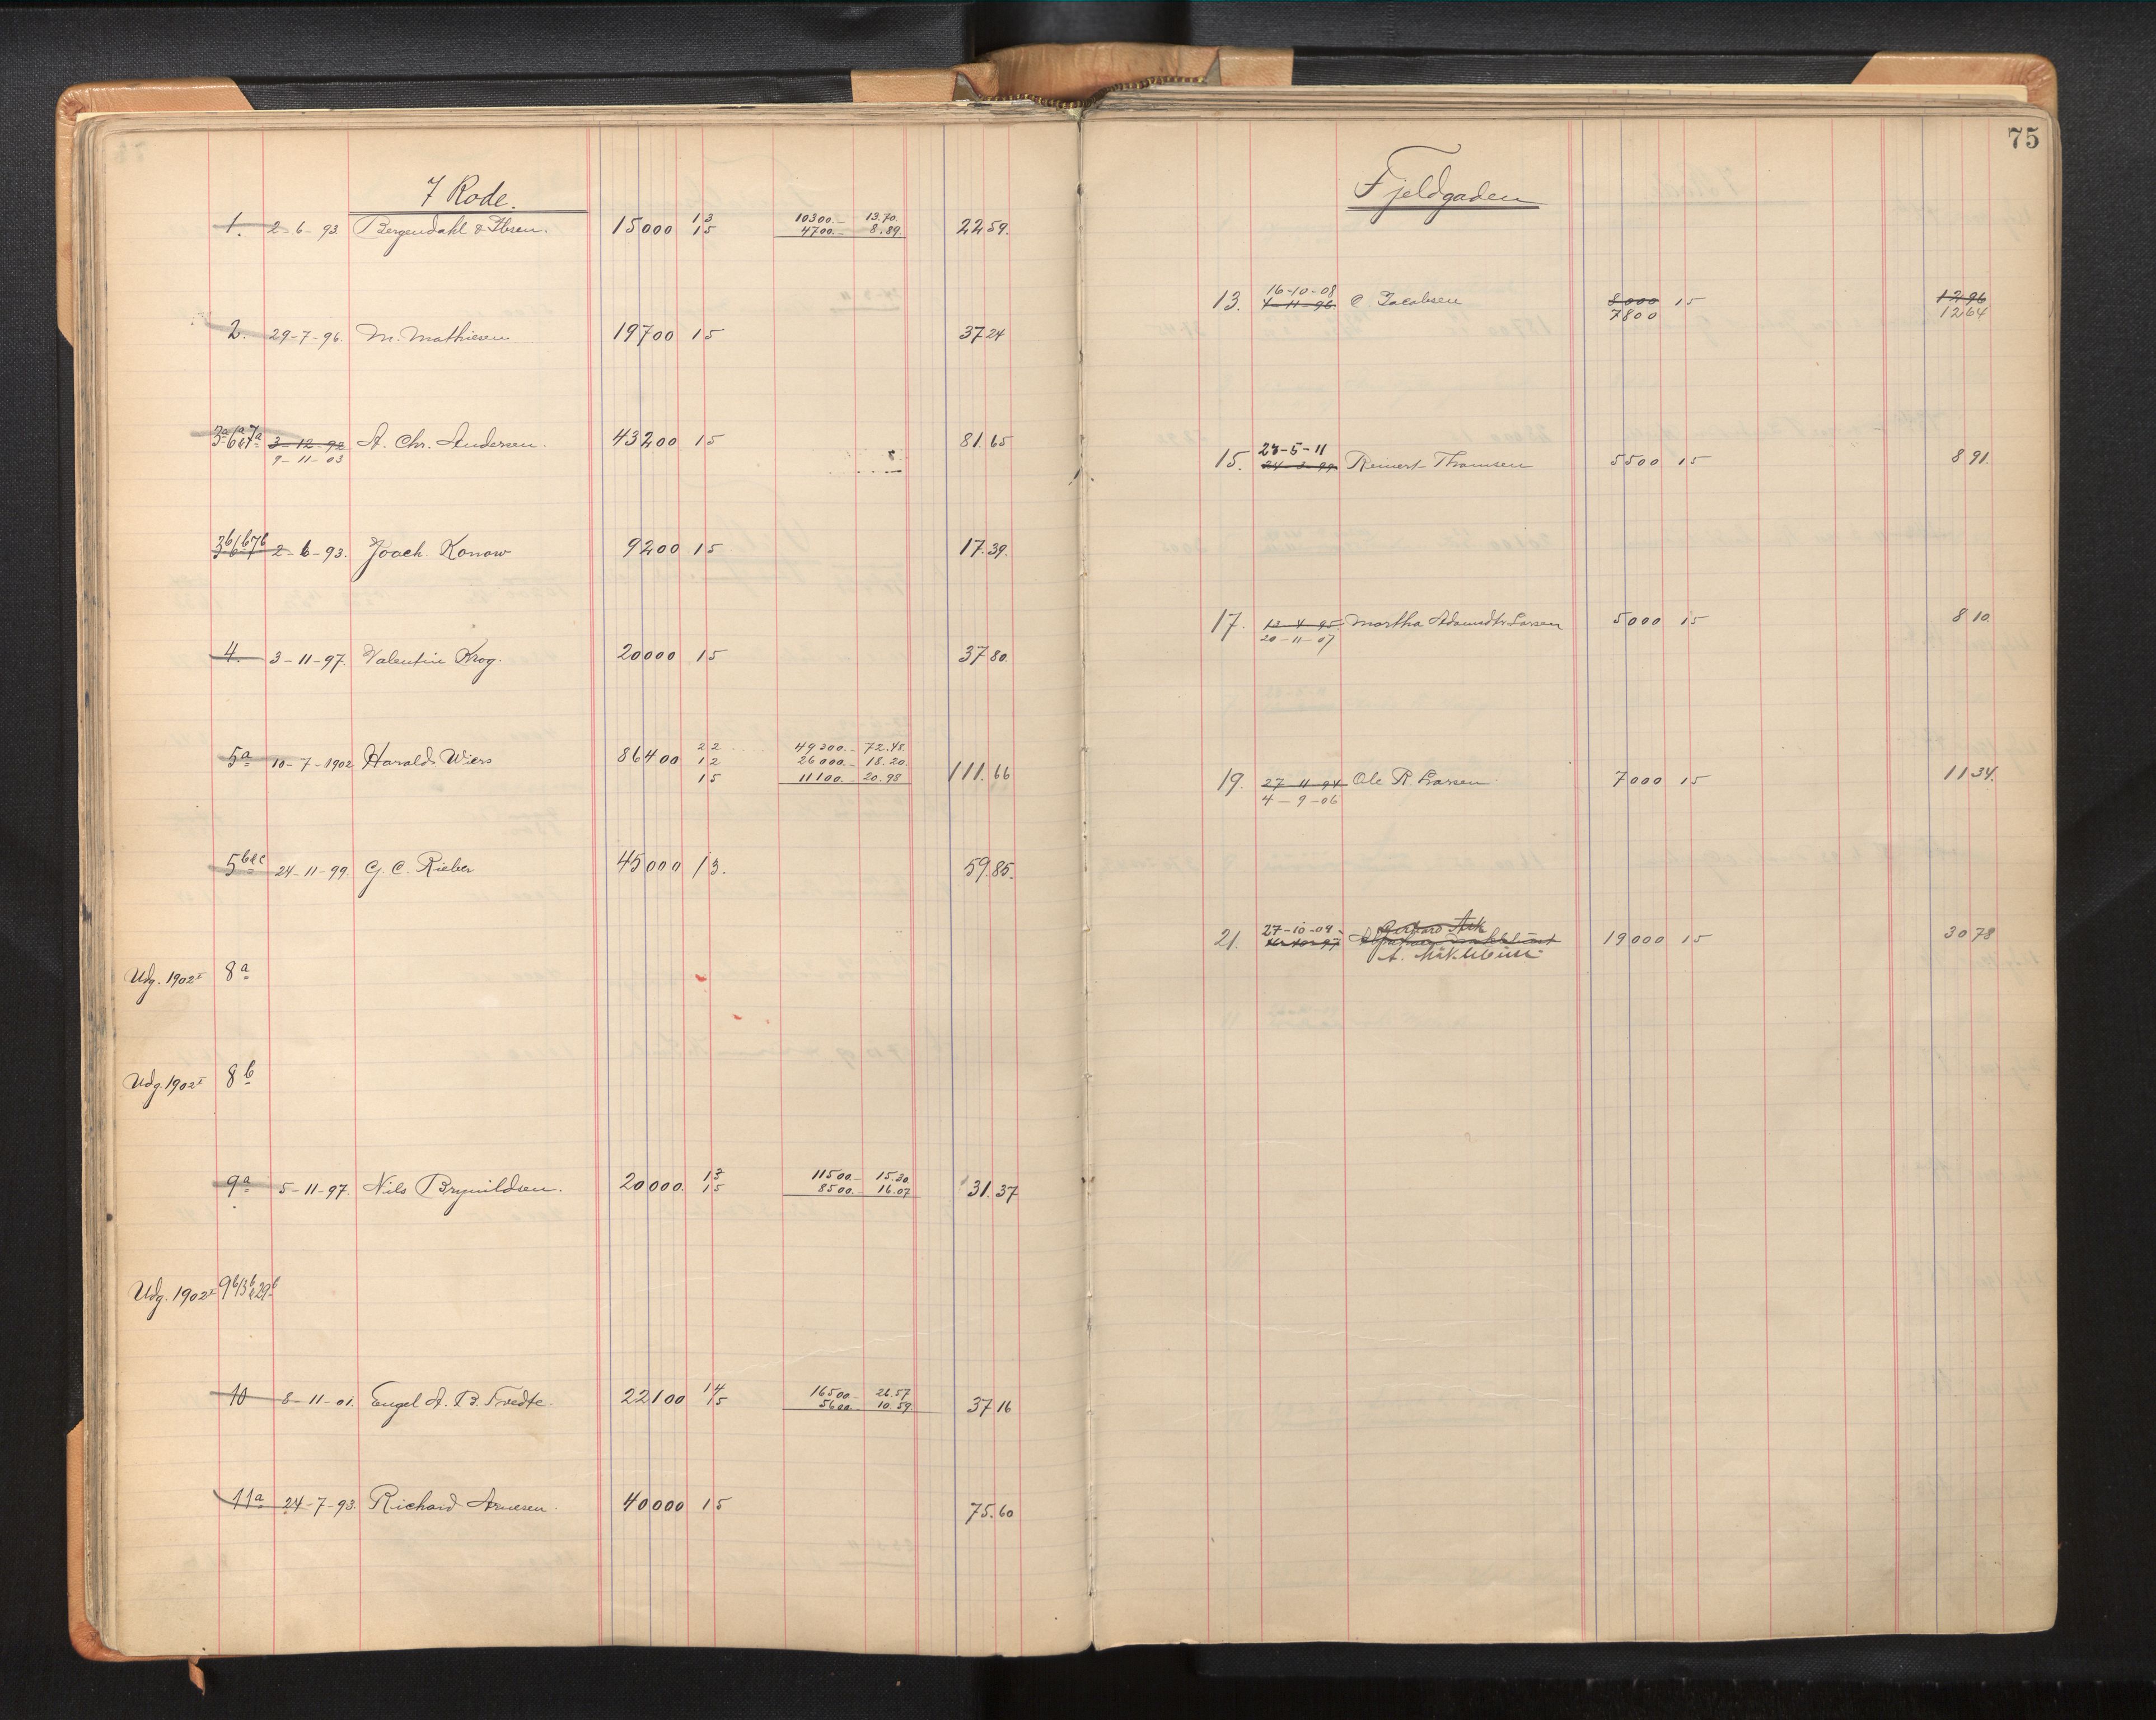 7 Rode.
1. 2-6-93. Bergendahl & Ibsen. 15000 13 10300.- 13.70.
15 4700.- 8.89. 22 59.
2. 29-7-96. M. Mathiesen 19700 15 37 24
3a/6a&7a 3-12-92 A. Chr. Andersen. 43200 15 81.65
9-11-03
3b/6&7b 2-6-93. Joach. Konow 9200 15 17.39.
4. 3-11-97. Valentin Krog. 20000 15 37 80.
5a 10-7-1902 Harald Wiers 86400 22 49300.- 72.48.
12 26000.- 18.20.
15 11100.- 20.98 111.66
5b&c 24-11-99. G. C. Rieber 45000 13. 59.85.
Udg. 1902 8a
Udg. 1902 8b
9a 5-11-97. Nils Brynildsen. 20000. 13 11500.- 15.30.
15 8500.- 16.07 31.37
Udg. 1902 9b/3b&29b
10 8-11-01. Engel A. B. Tvedte. 22100 14 16500.- 26.57
15 5600. 10.59 37 16
11a 24-7-93. Richard Arnesen. 40000 15 75.60
75
Fjeldgaden
16-10-08
13. 4-11-96. C Jacobsen 8000 15 12 96
7800 12 64
23-5-11
15. 24-3-99 Reinert Thomsen 5500 15 8 91.
17. 12-4-95 Martha Larsen 5000 15 8 10
20-11-07
19. 27-11-94 Ole R. Larsen 7000 15 11 34.
4-9-06
27-10-09 Gerhard Ask
21. 19000 15 30 78
A. Mjklebust